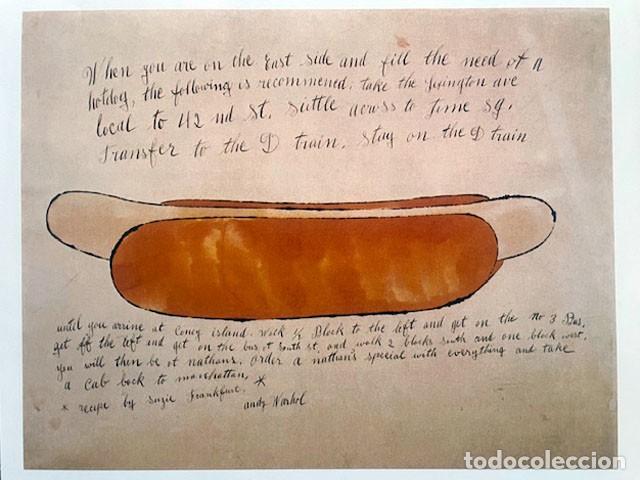 When you are on the East side and fill the need of a
hotdog, the following is recommened. take the lexington ave
local to 42 nd St. suttle across to Time sq.
Transfer to the D train. Stay on the D train
until you arrive at Coney island. walk ½ Block to the left and get on the no 3 Bus,
get off the left and get on the bus at south st. and walk 2 blocks south and one block west.
you will then be at nathans. order a nathan's special with everything and take
a cab back to manhattan. *
* recipe by Suzie Frankfurt.
andy Warhol
todocoleccion